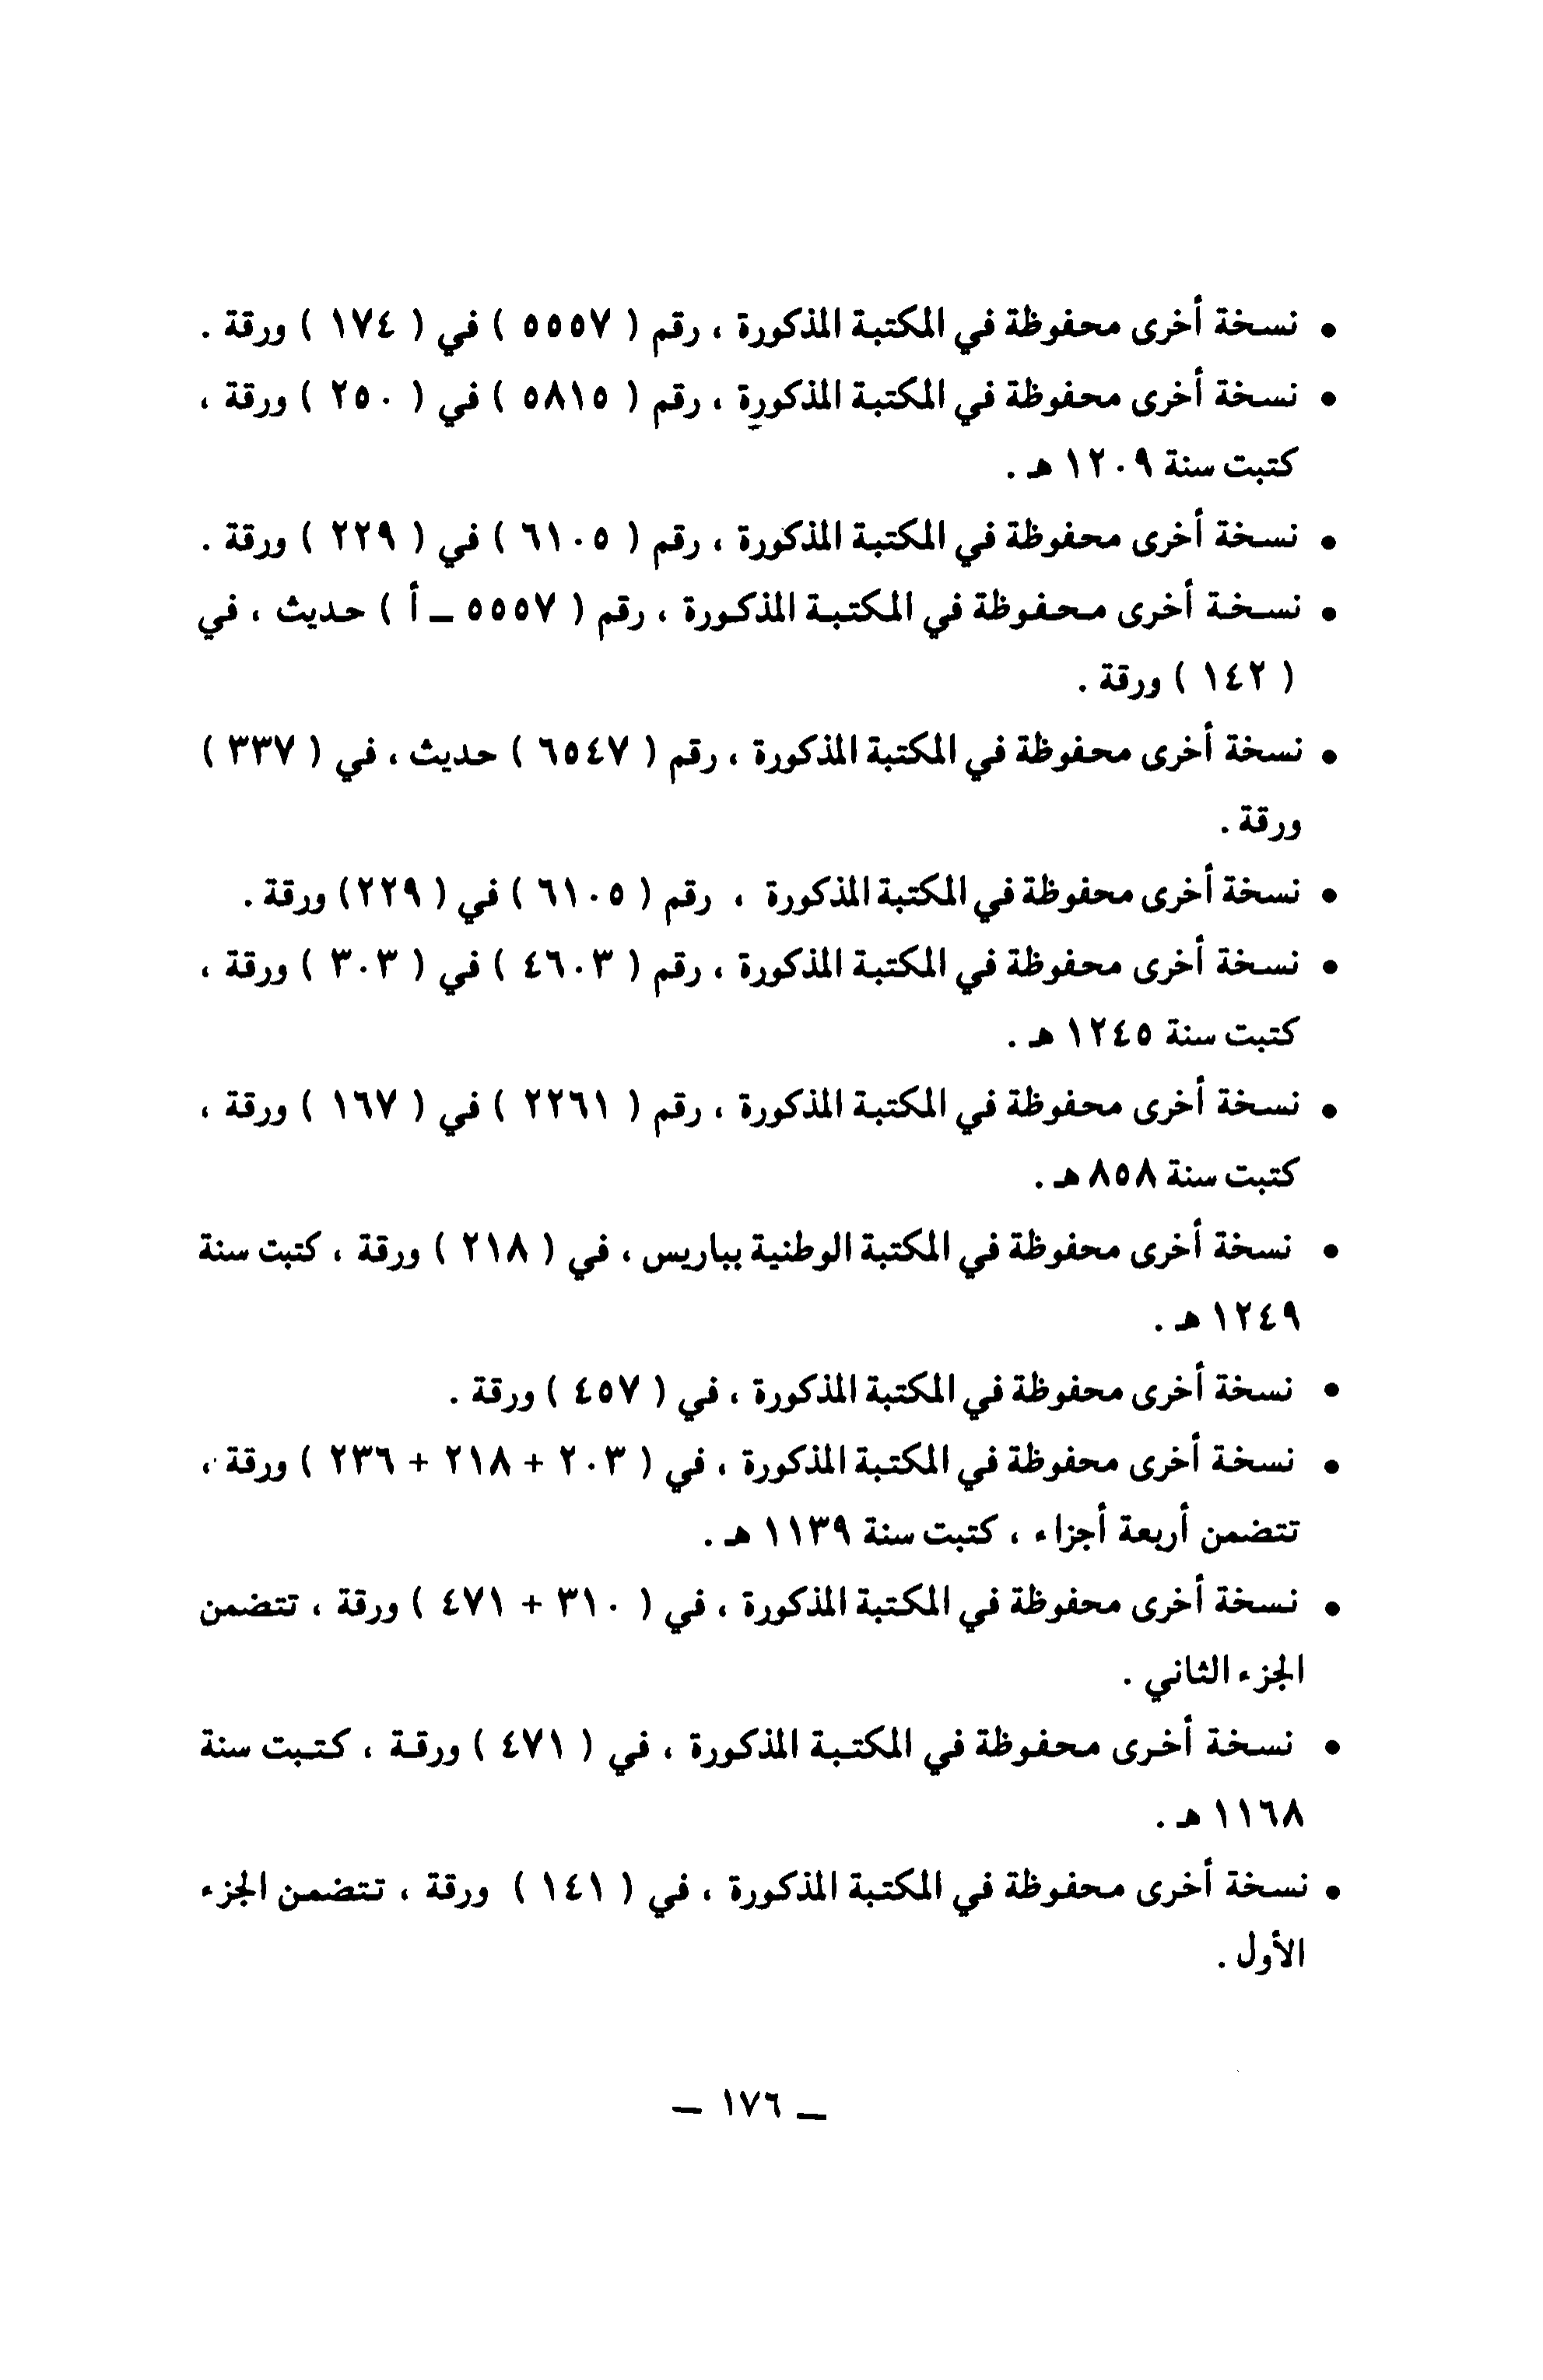 • نسخة أخرى محفوظة في المكتبة المذكورة ، رقم ( ٥٥٥٧ ) في ( ١٧٤ ) ورقة .
• نسخة أخرى محفوظة في المكتبة المذكورة ، رقم ( ٥٨١٥ ) في ( ٢٥٠ ) ورقة ،
كتبت سنة ١٢٠٩ هـ .
• نسخة أخرى محفوظة في المكتبة المذكورة ، رقم ( ٦١٠٥ ) في ( ٢٢٩ ) ورقة .
• نسخة أخرى محفوظة في المكتبة المذكورة ، رقم ( ٥٥٥٧ ــ أ ) حديث ، في
( ١٤٢ ) ورقة .
• نسخة أخرى محفوظة في المكتبة المذكورة ، رقم ( ٦٥٤٧ ) حديث ، في ( ٣٣٧ )
ورقة .
• نسخة أخرى محفوظة في المكتبة المذكورة ، رقم ( ٦١٠٥ ) في ( ٢٢٩) ورقة .
• نسخة أخرى محفوظة في المكتبة المذكورة ، رقم ( ٤٦٠٣ ) في ( ٣٠٣ ) ورقة ،
كتبت سنة ١٢٤٥ هـ .
• نسخة أخرى محفوظة في المكتبة المذكورة ، رقم ( ٢٢٦١ ) في ( ١٦٧ ) ورقة ،
كتبت سنة ٨٥٨ هـ .
• نسخة أخرى محفوظة في المكتبة الوطنية بباريس ، في ( ٢١٨ ) ورقة ، كتبت سنة
١٢٤٩ هـ .
• نسخة أخرى محفوظة في المكتبة المذكورة ، في ( ٤٥٧ ) ورقة .
• نسخة أخرى محفوظة في المكتبة المذكورة ، في ( ٢٠٣ + ٢١٨ + ٢٣٦ ) ورقة ،
تتضمن أربعة أجزاء ، كتبت سنة ١١٣٩ هـ .
• نسخة أخرى محفوظة في المكتبة المذكورة ، في ( ٣١٠ + ٤٧١ ) ورقة ، تتضمن
الجزء الثاني .
• نسخة أخرى محفوظة في المكتبة المذكورة ، في ( ٤٧١ ) ورقة ، كتبت سنة
١١٦٨ هـ .
• نسخة أخرى محفوظة في المكتبة المذكورة ، في ( ١٤١ ) ورقة ، تتضمن الجزء
الأول .
ــ ١٧٦ ــ